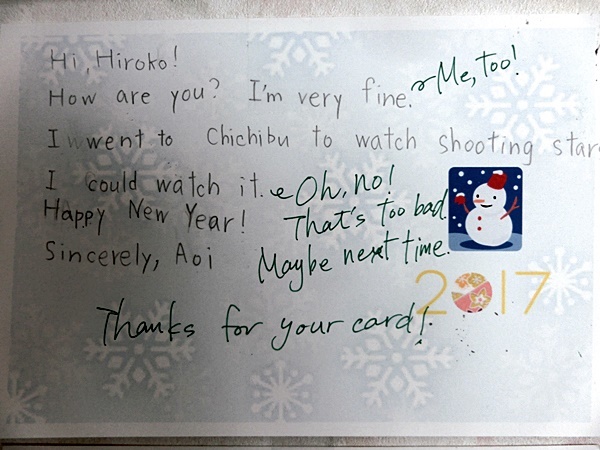 Hi, Hiroko!
Me, too!
How are you? I'm very fine.
I went to Chichibu to watch shooting star
I could watch it. Oh, no!
Happy New Year! That's too bad.
Sincerely, Aoi Maybe next time.
2017
Thanks for your card!